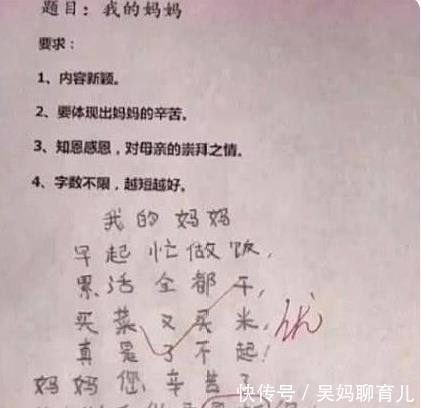 题目：我的妈妈
要求：
1、内容新颖。
2、要体现出妈妈的辛苦。
3、知恩感恩，对母亲的崇拜之情。
4、字数不限，越短越好。
我的妈妈
早起忙做饭，
累活全都干，
买菜又买米，
优
真是了不起！
妈妈您辛苦了
快传号／吴妈聊育儿